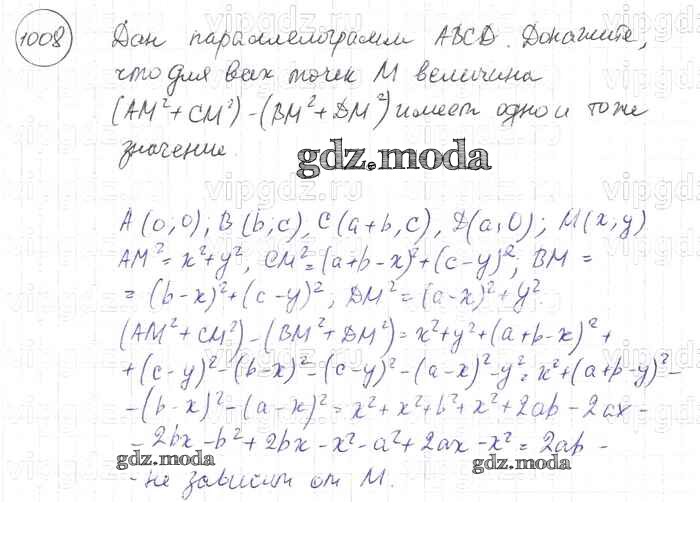 1008 Дан параллелограмм ABCD. Докажите,
что для всех точек M величина
(AM²+CM²)-(BM²+DM²) имеет одно и тоже
значение.
gdz.moda
A(0;0), B(b;c), C(a+b,c), D(a,0); M(x,y)
AM²=x²+y², CM²=(a+b-x)²+(c-y)²; BM =
=(b-x)²+(c-y)²; DM²=(a-x)²+y².
(AM²+CM²)-(BM²+DM²)=x²+y²+(a+b-x)²+
+(c-y)²-(b-x)²-(c-y)²-(a-x)²-y²=x²+(a+b-y)²-
-(b-x)²-(a-x)²=x²+x²+b²+x²+2ab-2ax-
-2bx-b²+2bx-x²-a²+2ax-x²=2ab-
gdz.moda gdz.moda
-не зависит от M.